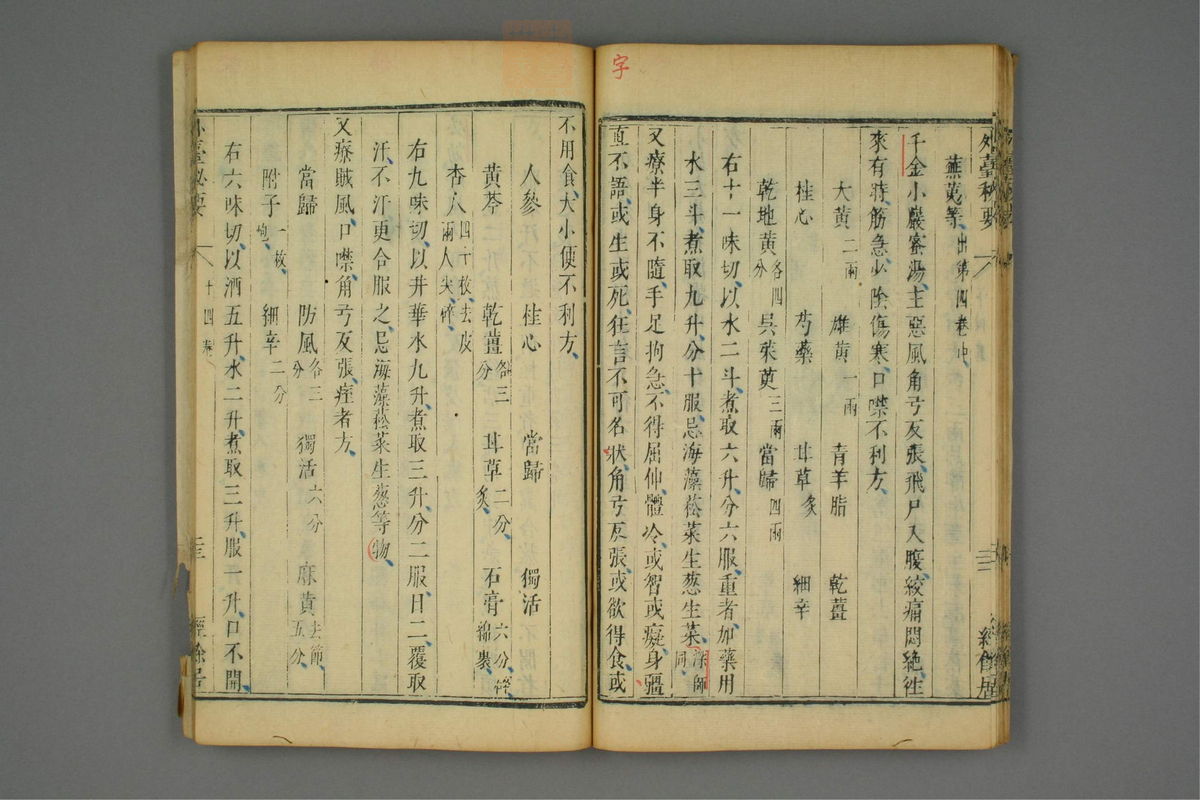 字
外臺秘要
三
經餘居
蕪荑等、出第四卷中、
千金小巖蜜湯、主惡風角弓反張、飛尸入腹、絞痛悶絕、往
來有時、筋急、少陰傷寒、口噤不利方、
大黃二兩 雄黃一兩 青羊脂 乾薑
桂心 芍藥 甘草炙 細辛
乾地黃各四分 吳茱萸三兩 當歸四兩
右十一味切、以水二斗、煮取六升、分六服、重者加藥用
水三斗、煮取九升、分十服、忌海藻、菘菜、生葱、生菜、深師同
又療半身不隨、手足拘急、不得屈伸、體冷、或智或癡、身彊
直不語、或生或死、狂言不可名狀、角弓反張、或欲得食、或
不用食、大小便不利方、
人參 桂心 當歸 獨活
黃芩 乾薑各三分 甘草二分、炙、 石膏六分、碎、綿裹、
杏人四十枚、去皮兩人尖、碎、
右九味切、以井華水九升、煮取三升、分二服、日二、覆取
汗、不汗更合服之、忌海藻菘菜生葱等物、
又療賊風、口噤、角弓反張、痓者方、
當歸 防風各三分 獨活六分 麻黃去節、五分、
附子一枚、炮、 細辛二分
右六味切、以酒五升、水二升、煮取三升、服一升、口不開、
外臺秘要
十四卷
三
經餘居